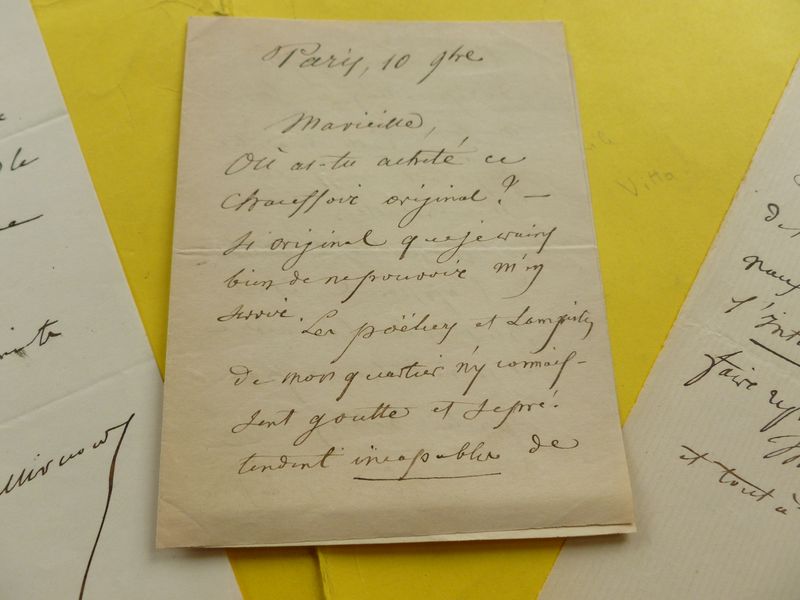 Paris, 10 9bre
Ma vieille,
Où as-tu acheté ce
chauffoir original? —
si original que je crains
bien de ne pouvoir m'en
servir.
Les poëliers et Lampistes
de mon quartier n'y connais-
sent goutte et se pré-
tendent incapables de
Vitta
de
nous
l'Int
faire
et tout à